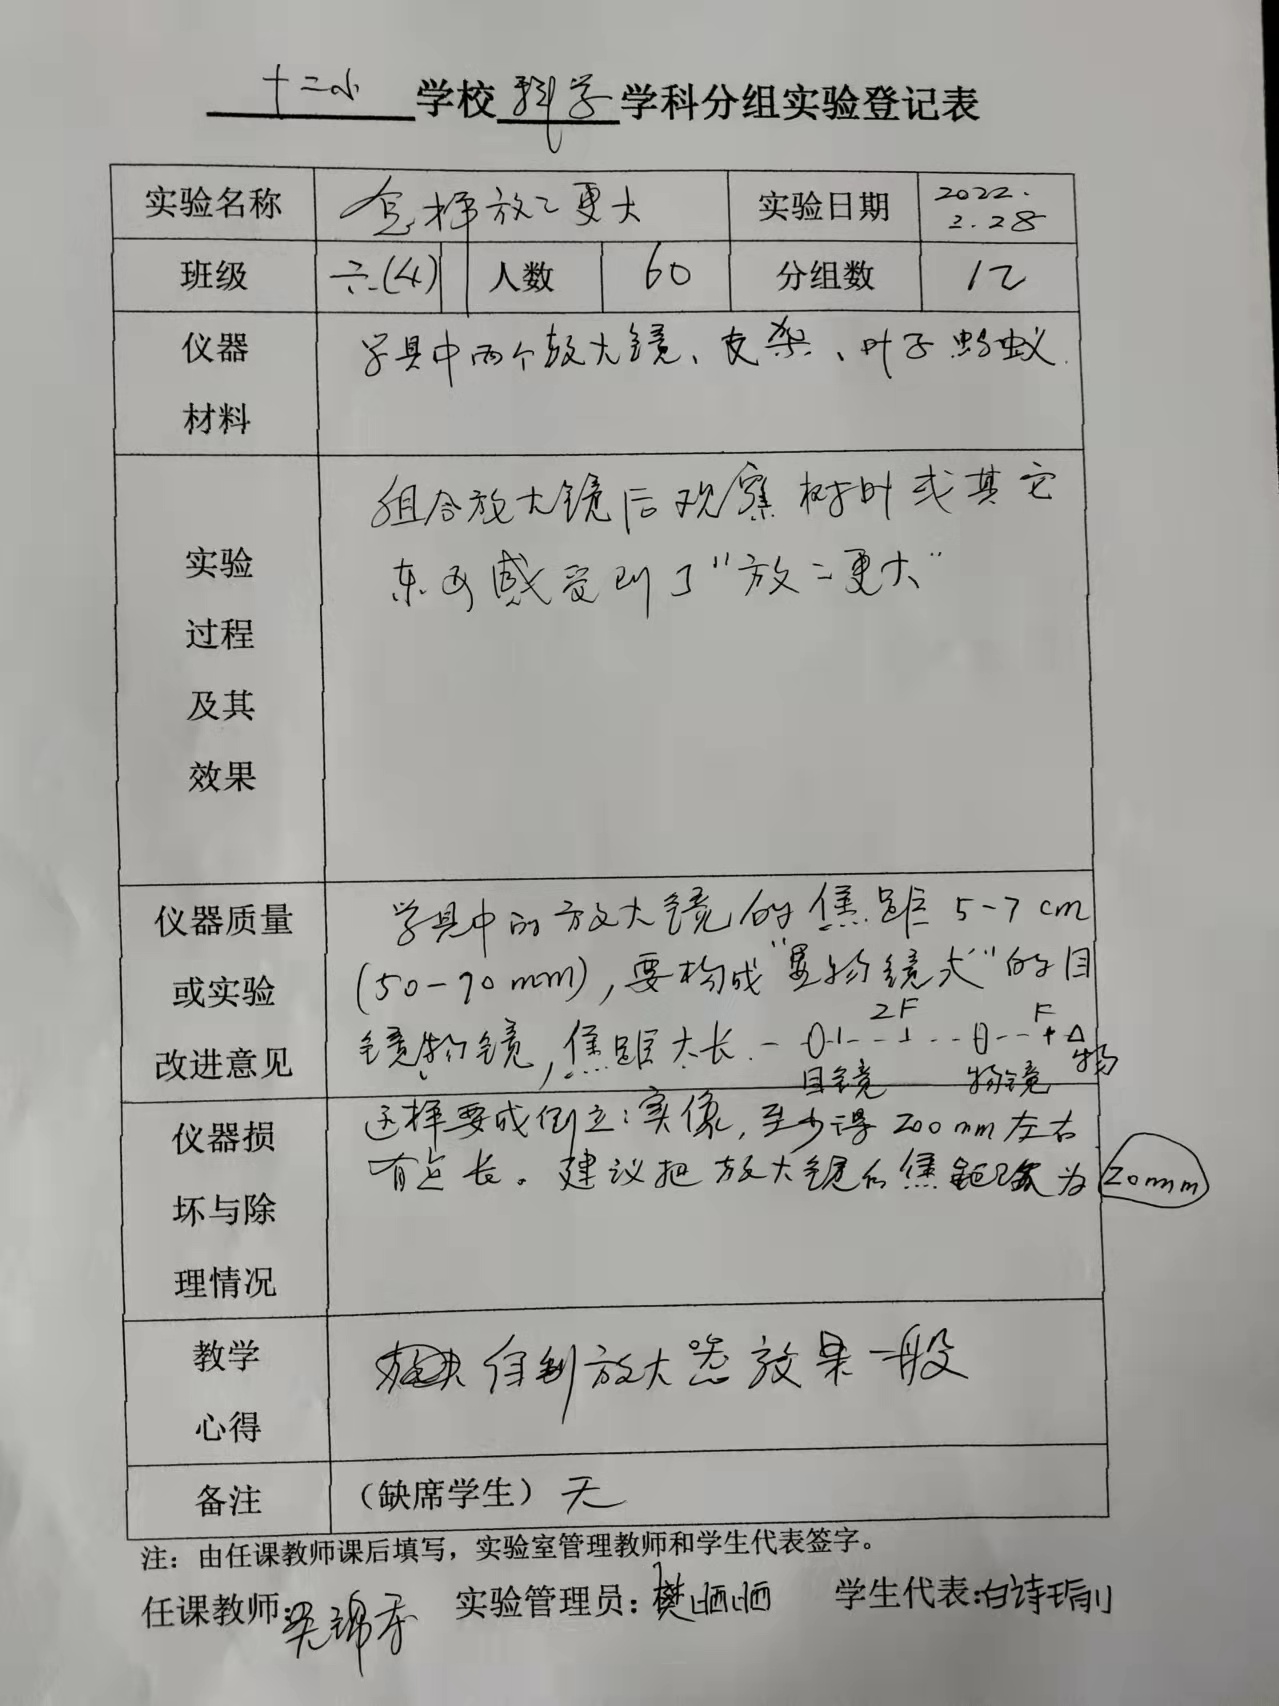 十二小 学校 科学 学科分组实验登记表
实验名称 怎样放之更大 实验日期 2022.2.28
班级 六(4) 人数 60 分组数 12
仪器材料 学具中两个放大镜、支架、叶子 蚂蚁.
实验过程及其效果
组合放大镜后观察树叶或其它
东西感受到了"放二更大"
仪器质量或实验改进意见
学具中的放大镜的焦距5-7cm
(50-70mm),要构成"显物镜式"的目
镜物镜,焦距太长.
2F F
目镜 物镜 物
仪器损坏与除理情况
这样要成倒立实像,至少得200mm左右
有点长。建议把放大镜的焦距改为20mm
教学心得 得到放大 效果一般
备注 (缺席学生) 无
注:由任课教师课后填写,实验室管理教师和学生代表签字。
任课教师: 实验管理员:樊晒晒 学生代表:白诗瑞